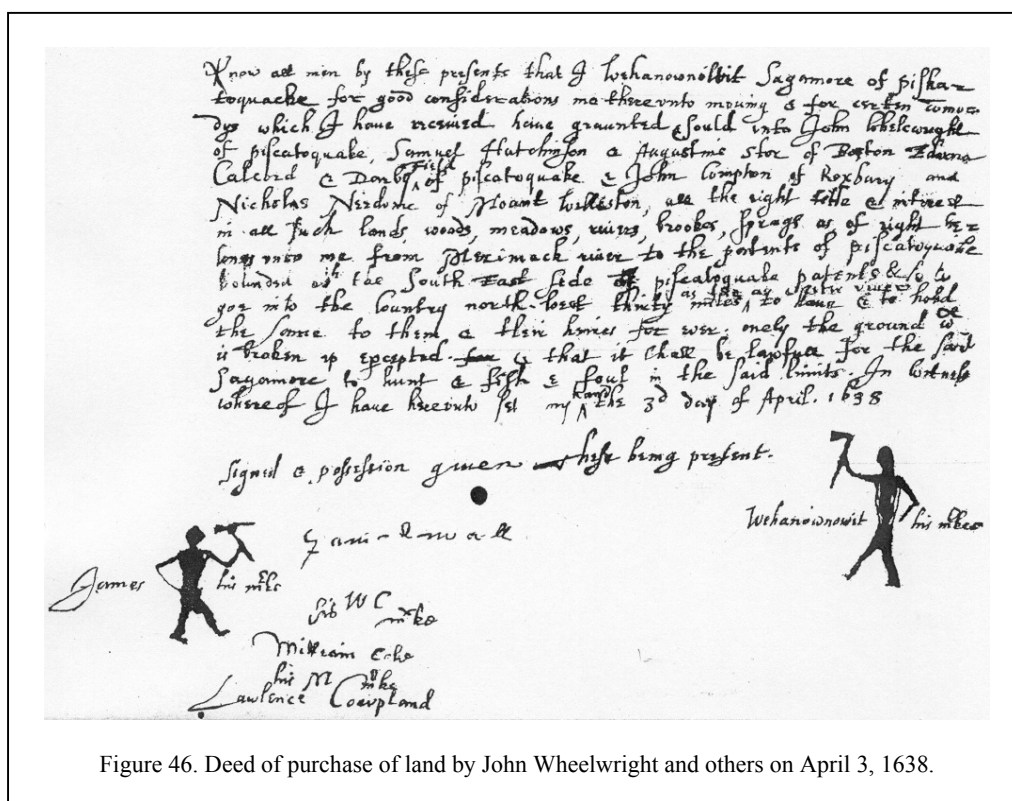 Know all men by these presents that I Wehanownowit Sagamore of piskat
toquacke for good considerations me therevnto moving & for certen comodys
dys which I have received have graunted & sould vnto John Whelewright
of piscatoquake, Samuel Hutchinson & Augustine Stor of Boston Edward
Calcord & Darby Field of piscatoquake & John Compton of Roxbury and
Nicholas Needome of Mount Willeston, all the right title & interest
in all such lands, woods, meadows, rivers, brookes, springs as of right be
longs vnto me from Merimack river to the patents of piscatoquake
bounded wth the South East side of piscatoquake patents & so to
goe into the Country north-west thirty miles as far as oyster river to have & to hold
the same to them & their heires for ever. onely the ground wch
is broken up excepted. & that it shall be lawfull for the said
Sagamore to hunt & fish & foul in the said limits. In witness
whereof I have herevnto set my hand the 3d day of April. 1638
signed & possession given these being present.
Wehanownowit his mke
James his mke
his W C mke
William Cole
his M mke
Lawlence Coupland
Figure 46. Deed of purchase of land by John Wheelwright and others on April 3, 1638.